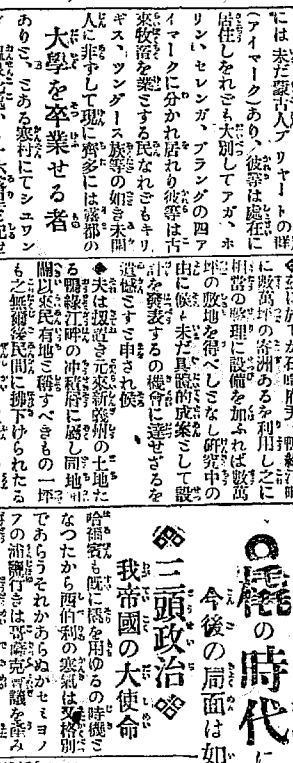 には未だ蒙古人ブリヤートの時
(アイマーク)あり、彼等は處在に
居住しをれども大別してアガ、ホ
リン、セレンガ、ブラングの四ア
イマークに分かれ居れり彼等は古
來牧畜を業とする民なれどもキリ
ギス、ツングース族等の如き未開
人に非ずして現に齊多には露都の
大學を卒業せる者
ありと、とある寒村にてシュワン
に數萬坪の寄洲あるを利用し之に
相當の整理に設備を加ふれば數萬
坪の敷地を得べしとなし研究中の
由に候も未だ具體的成案として設
計を發表するの機會に達せざるを
遺憾とすと申され候
◆夫は扨置き元來新義州の土地た
る鴨綠江畔の冲積層に屬し同地開
闢以來民有地と稱すべきもの一坪
も之無爾後民間に拂下げられたる
橇の時代に
今後の局面は如
三頭政治
我帝國の大使命
哈爾賓も既に橇を用ゆるの時機と
なつたから西伯利の寒氣は又格別
であらうそれかあらぬかセミヨノ
フの浦鹽行きは哥薩克會議を產み